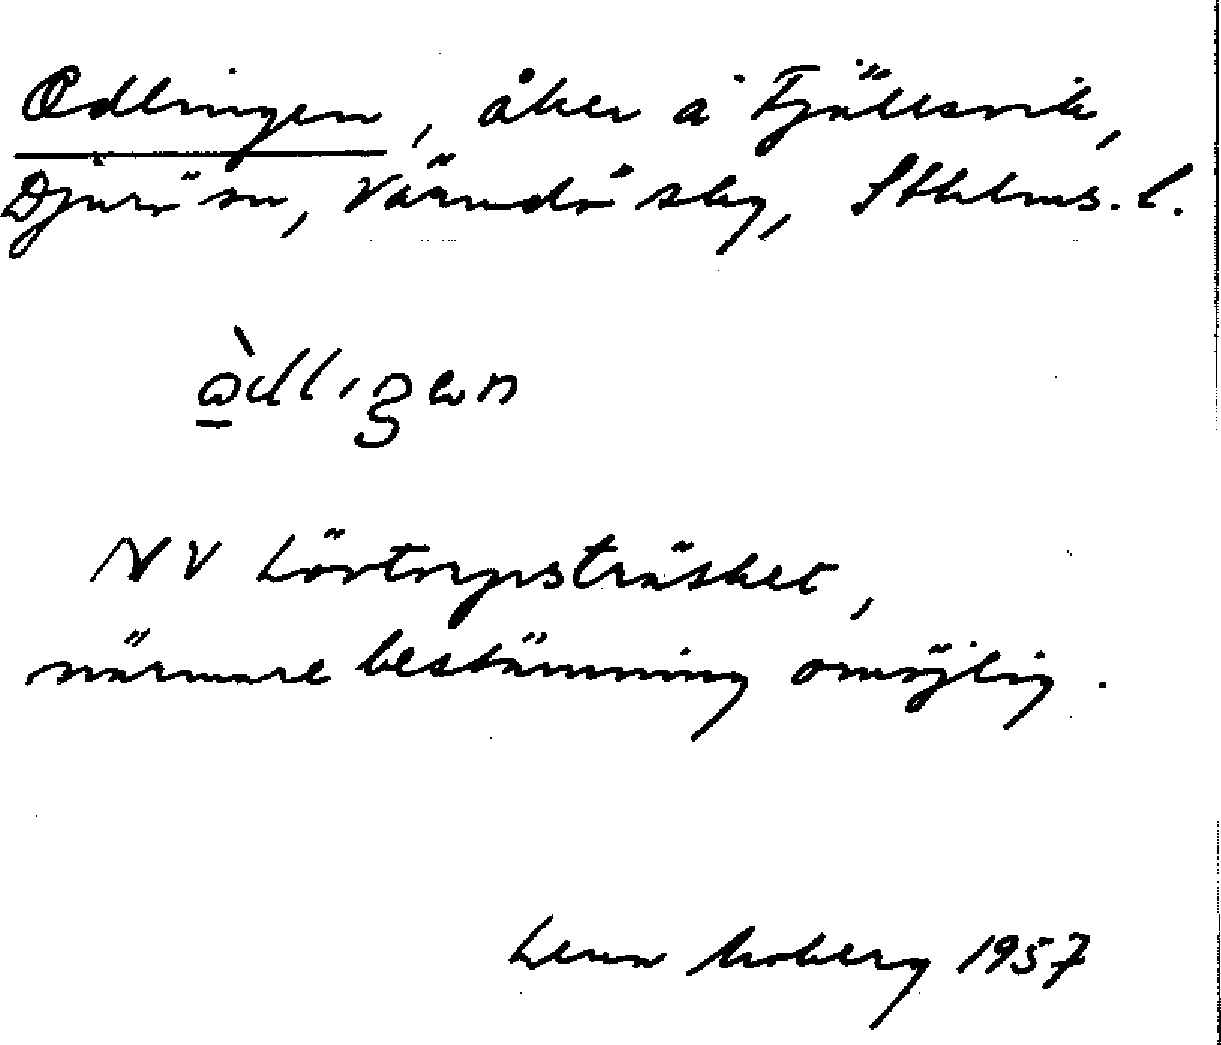 Odlingen, åker å Fjällsvik,
Djurö sn, Värmdö skg, Sthlms. l.
ò̲dligen
NV Lövtorpsträsket,
närmare bestämning omöjlig.
Lena Moberg 1957